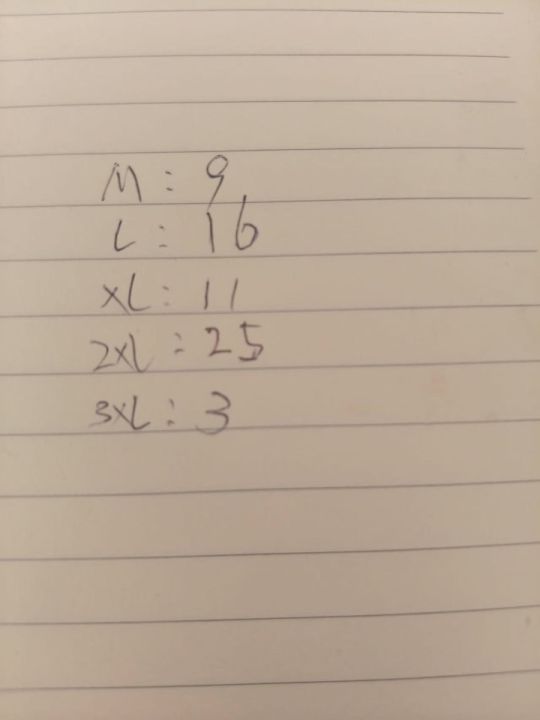 M: 9
L: 16
XL: 11
2XL: 25
3XL: 3